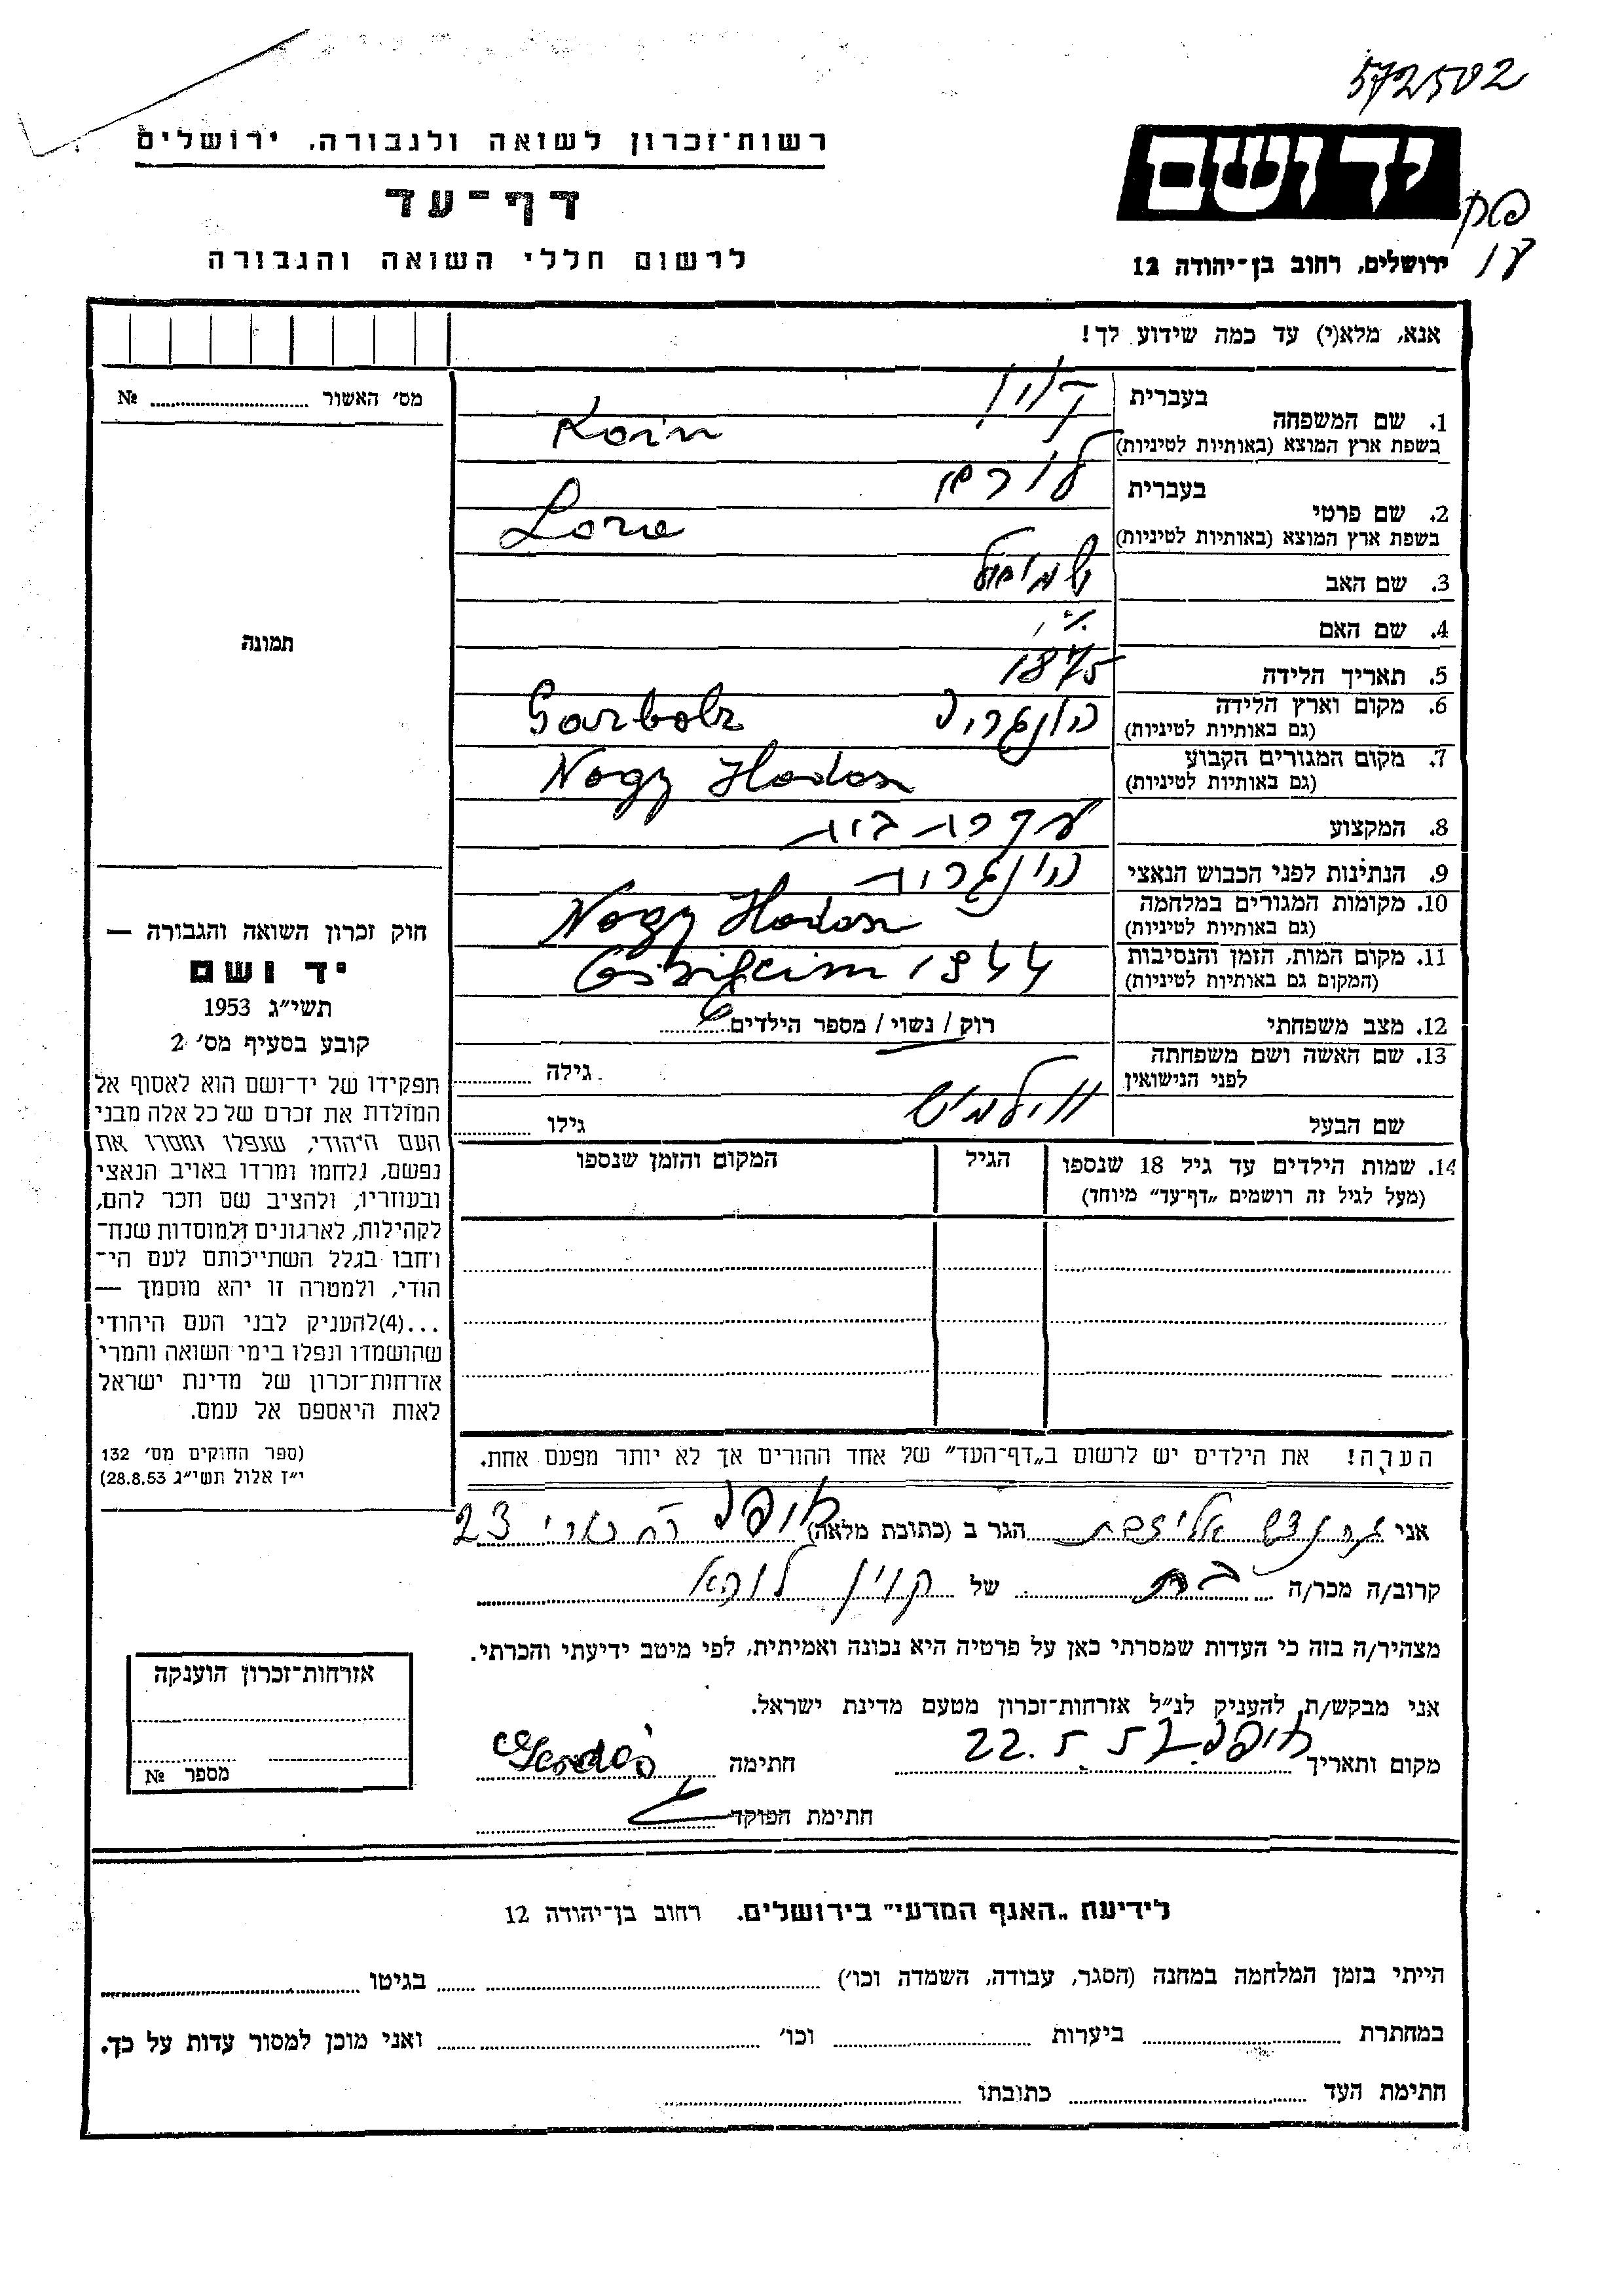 572502
רשות־זכרון לשואה ולגבורה, ירושלים
יד ושם
דף־עד
לרשום חללי השואה והגבורה
ירושלים, רחוב בן־יהודה 12
אנא, מלא(י) עד כמה שידוע לך!
מס׳ האשור № 
1. שם המשפחה בעברית קוין
בשפת ארץ המוצא (באותיות לטיניות) Koin
2. שם פרטי בעברית
בשפת ארץ המוצא (באותיות לטיניות) Lore
3. שם האב שמואל
4. שם האם
5. תאריך הלידה 1875
6. מקום וארץ הלידה הונגריה
(גם באותיות לטיניות) Garbolz
7. מקום המגורים הקבוע
(גם באותיות לטיניות) Nagy Hodos
8. המקצוע עקרת בית
9. הנתינות לפני הכבוש הנאצי הונגרית
10. מקומות המגורים במלחמה
(גם באותיות לטיניות) Nagy Hodos
11. מקום המות, הזמן והנסיבות
(המקום גם באותיות לטיניות) 1944
12. מצב משפחתי רוק / נשוי / מספר הילדים
13. שם האשה ושם משפחתה
לפני הנישואין גילה
שם הבעל גילו
14. שמות הילדים עד גיל 18 שנספו הגיל המקום והזמן שנספו
(מעל לגיל זה רושמים „דף־עד״ מיוחד)
הערה! את הילדים יש לרשום ב„דף־העד״ של אחד ההורים אך לא יותר מפעם אחת.
תמונה
חוק זכרון השואה והגבורה —
יד ושם
תשי״ג 1953
קובע בסעיף מס׳ 2
תפקידו של יד־ושם הוא לאסוף אל
המולדת את זכרם של כל אלה מבני
העם היהודי, שנפלו ומסרו את
נפשם, נלחמו ומרדו באויב הנאצי
ובעוזריו, ולהציב שם וזכר להם,
לקהילות, לארגונים ולמוסדות שנח־
רבו בגלל השתייכותם לעם הי־
הודי, ולמטרה זו יהא מוסמך —
...(4) להעניק לבני העם היהודי
שהושמדו ונפלו בימי השואה והמרי
אזרחות־זכרון של מדינת ישראל
לאות היאספם אל עמם.
(ספר החוקים מס׳ 132
י״ז אלול תשי״ג 28.8.53)
אני אליזבת הגר ב (כתובת מלאה) חיפה 23
קרוב/ה מכר/ה בת של קוין
מצהיר/ה בזה כי העדות שמסרתי כאן על פרטיה היא נכונה ואמיתית, לפי מיטב ידיעתי והכרתי.
אני מבקש/ת להעניק לנ״ל אזרחות־זכרון מטעם מדינת ישראל.
מקום ותאריך חיפה 22.5.57 חתימה
חתימת הפוקד
אזרחות־זכרון הוענקה
מספר №
לידיעת „האגף המדעי״ בירושלים, רחוב בן־יהודה 12
הייתי בזמן המלחמה במחנה (הסגר, עבודה, השמדה וכו׳) בגיטו
במחתרת ביערות וכו׳ ואני מוכן למסור עדות על כך.
חתימת העד כתובתו